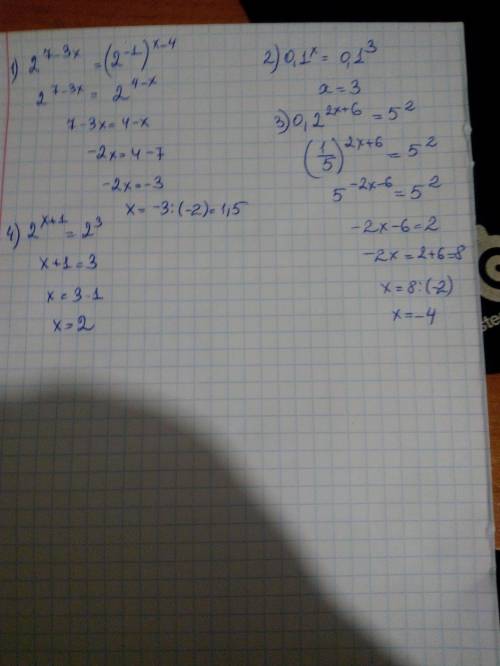 1) 2^{7-3x} = (2^{-1})^{x-4}
2^{7-3x} = 2^{4-x}
7-3x=4-x
-2x=4-7
-2x=-3
x= -3:(-2)=1,5
4) 2^{x+1}=2^3
x+1=3
x=3-1
x=2
2) 0,1^x = 0,1^3
x=3
3) 0,2^{2x+6} = 5^2
(1/5)^{2x+6} = 5^2
5^{-2x-6}=5^2
-2x-6=2
-2x=2+6=8
x=8:(-2)
x=-4